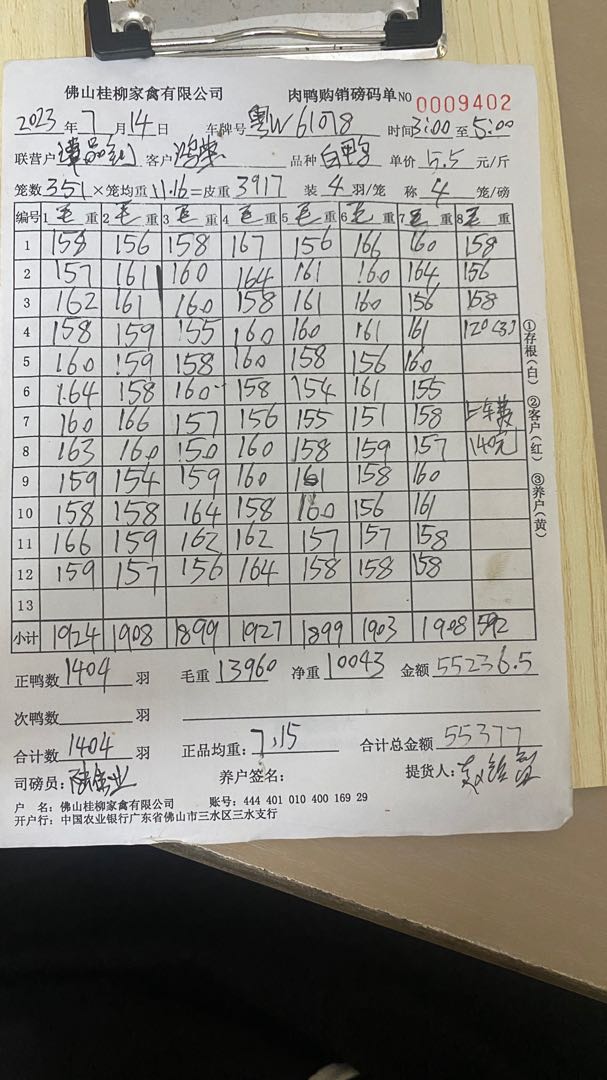 佛山桂柳家禽有限公司 肉鸭购销磅码单 NO 0009402
2023年7月14日 车牌号 粤W61078 时间3:00至5:00
联营户 客户 鸿荣 品种 白鸭 单价 5.5 元/斤
笼数 351 ×笼均重 11.16 =皮重 3917 装 4 羽/笼 称 4 笼/磅
编号 1毛重 2毛重 3毛重 4毛重 5毛重 6毛重 7毛重 8毛重
1 158 156 158 167 156 166 160 158
2 157 161 160 164 161 160 164 156
3 162 161 160 158 161 160 156 158
4 158 159 155 160 160 161 161 120(3)
5 160 159 158 160 158 156 160
6 164 158 160 158 154 161 155
7 160 166 157 156 155 151 158 上车费
8 163 160 150 160 158 159 157 140元
9 159 154 159 160 161 158 160
10 158 158 164 158 160 156 161
11 166 159 162 162 157 157 158
12 159 157 156 164 158 158 158
13
小计 1924 1908 1899 1927 1899 1903 1908 592
①存根(白) ②客户(红) ③养户(黄)
正鸭数 1404 羽 毛重 13960 净重 10043 金额 55236.5
次鸭数 羽
合计数 1404 羽 正品均重: 7.15 合计总金额 55377
司磅员: 养户签名: 提货人:
户 名: 佛山桂柳家禽有限公司 账号: 444 401 010 400 169 29
开户行: 中国农业银行广东省佛山市三水区三水支行